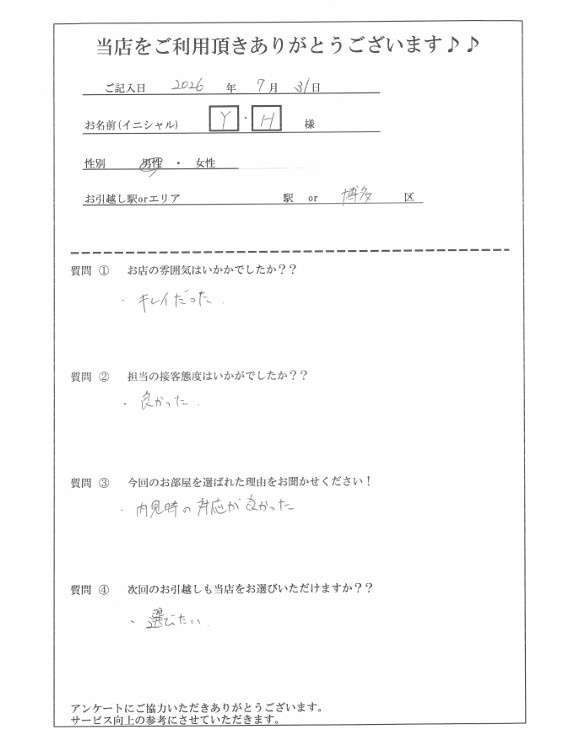 当店をご利用頂きありがとうございます♪♪
ご記入日 2026 年 7 月 31 日
お名前(イニシャル) Y ・ H 様
性別 男性 ・ 女性
お引越し駅orエリア 駅 or 博多 区
質問 ① お店の雰囲気はいかかでしたか？？
・ キレイだった.
質問 ② 担当の接客態度はいかがでしたか？？
・ 良かった.
質問 ③ 今回のお部屋を選ばれた理由をお聞かせください！
・ 内見時の対応が良かった
質問 ④ 次回のお引越しも当店をお選びいただけますか？？
・ 選びたい.
アンケートにご協力いただきありがとうございます。
サービス向上の参考にさせていただきます。